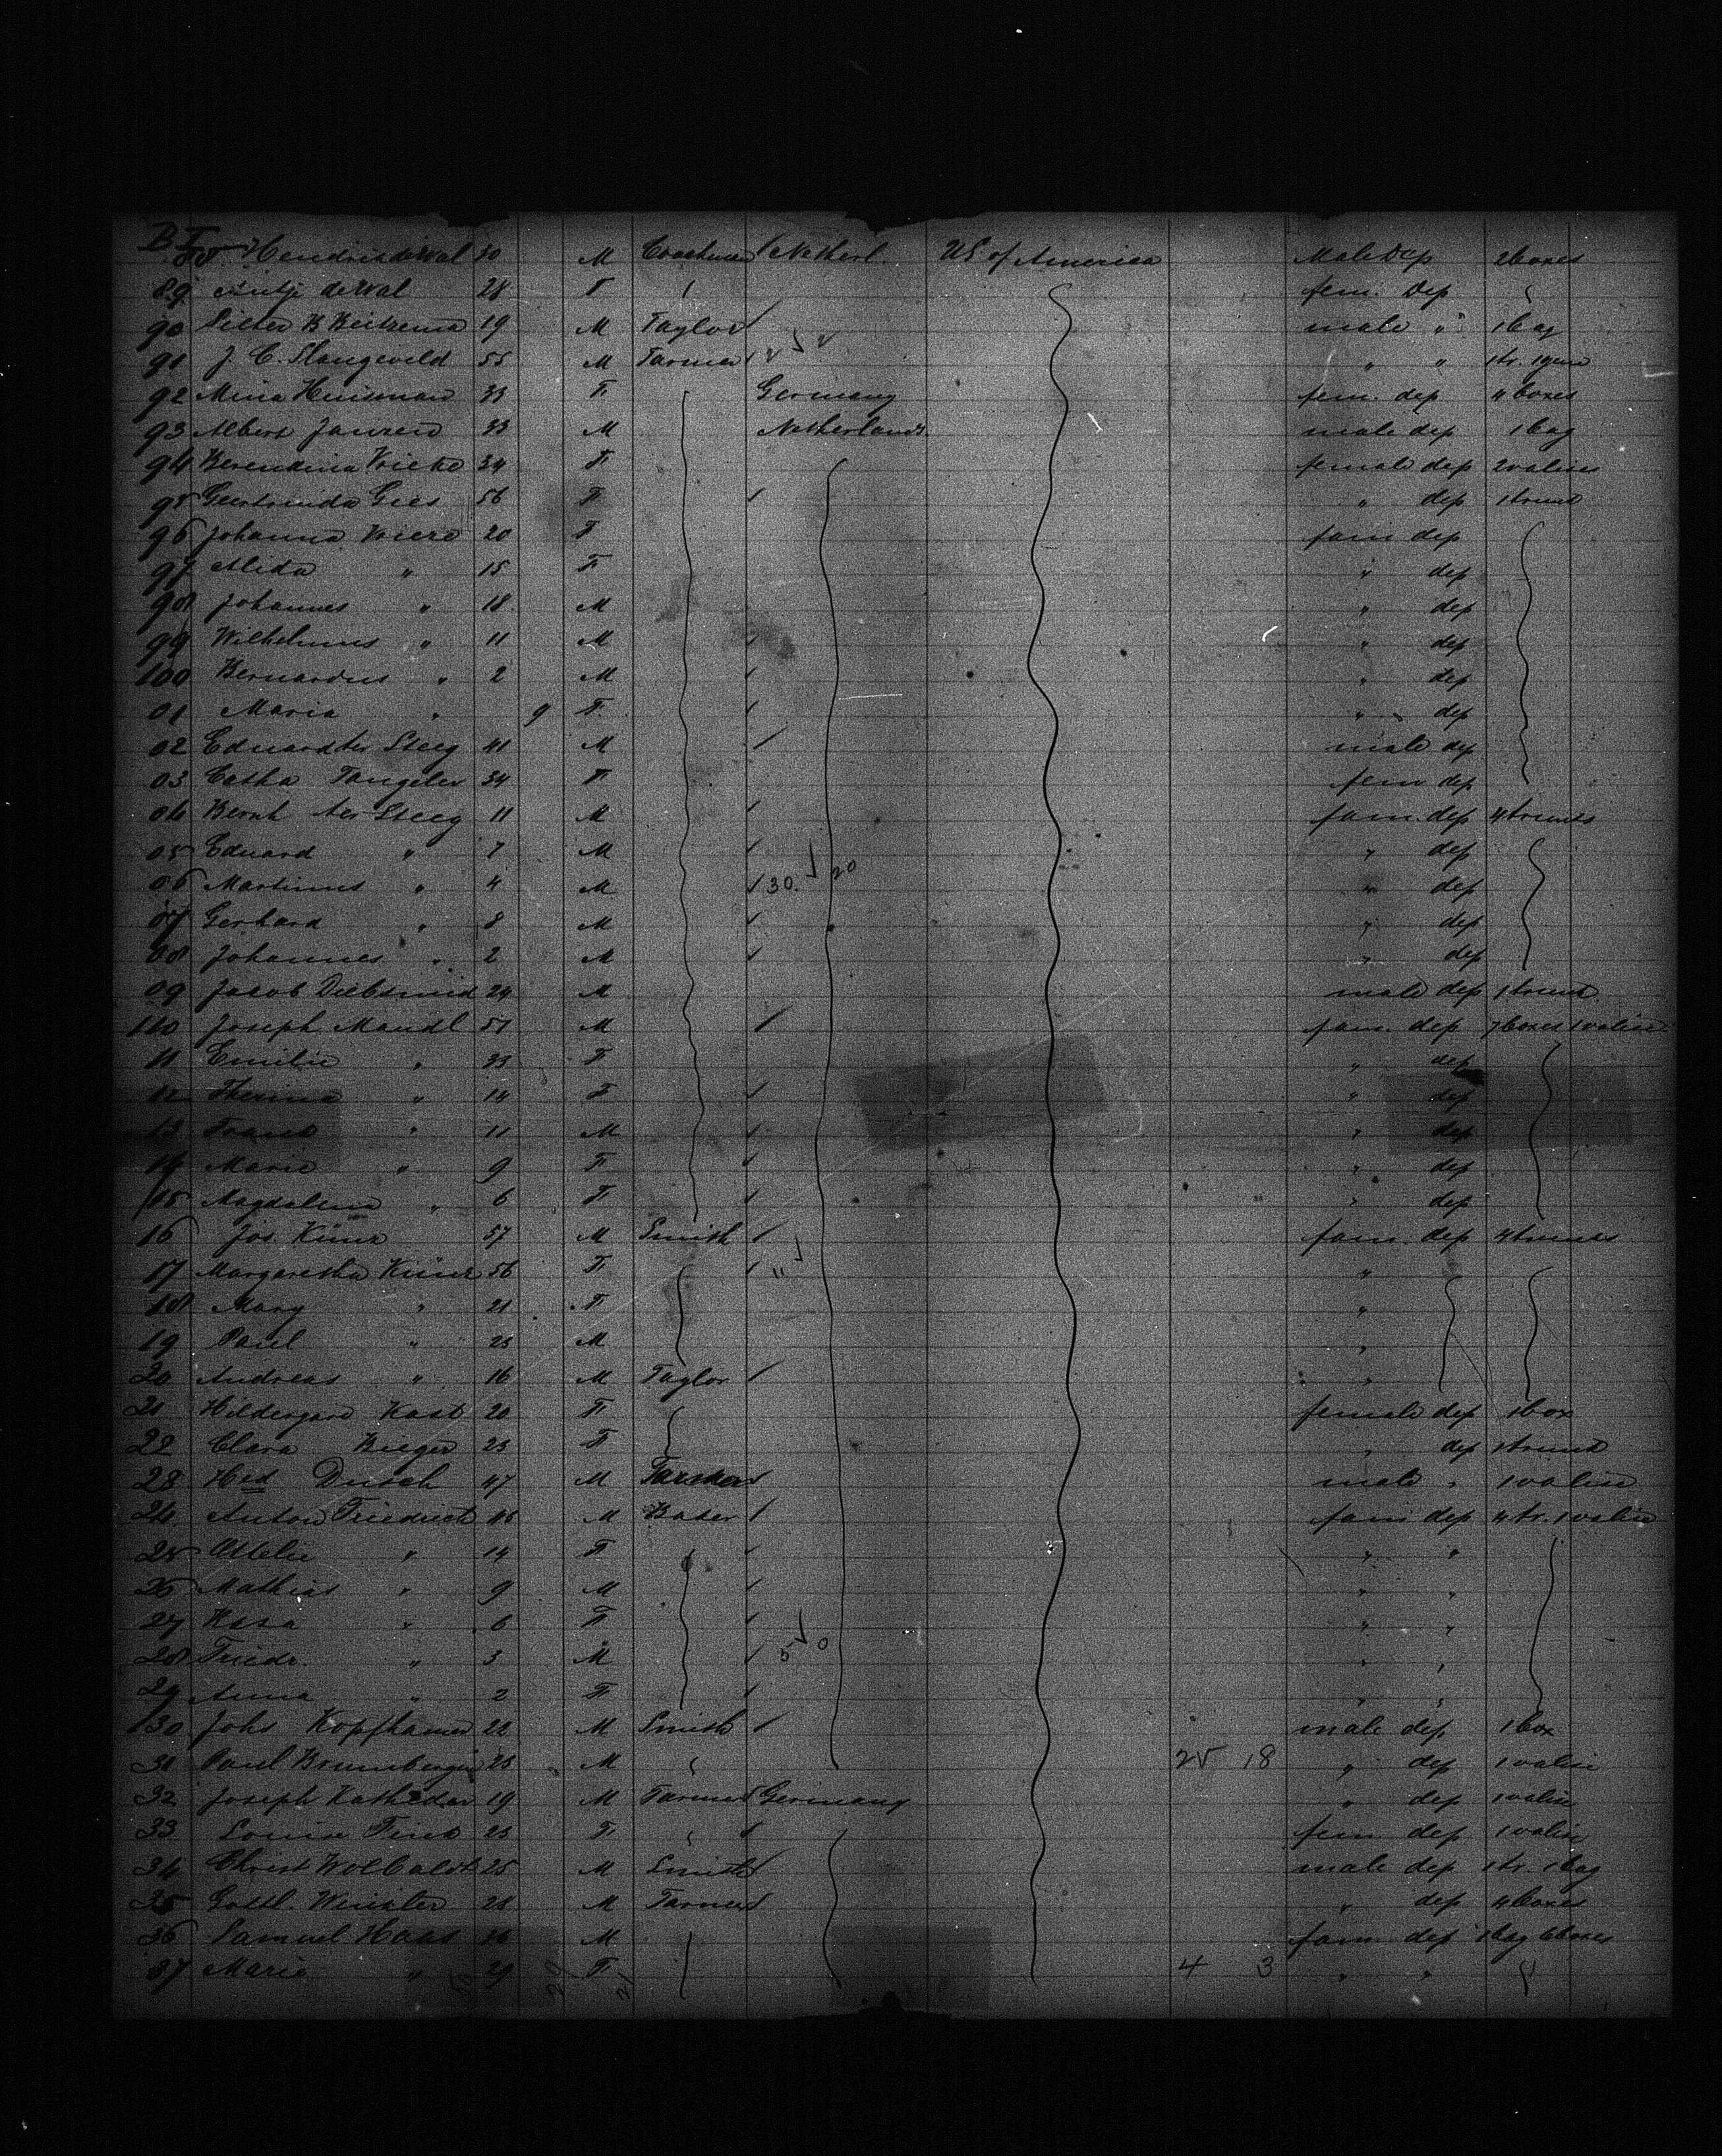 BI
88 Hendrik de Wal 30 M Coachman Netherl. U.S. of America Male Dep 2 boxes
89 Antje de Wal 28 F fem. Dep
90 Pieter B Beitzema 19 M Taylor male " 1 bag
91 J. C. Slangeveld 55 M Farmer " " 1 tr.
92 Mina Huisman 33 F Germany fem. dep 4 boxes
93 Albert Janzen 33 M Netherlands male dep 1 bag
94 Berendina 34 F female dep 2 valises
95 Geertruida Gies 56 F " dep 1 trunk
96 Johanna 20 F fam dep
97 Alida " 15 F " dep
98 Johannes " 18 M " dep
99 Wilhelmus " 11 M " dep
100 Bernardus " 2 M " dep
01 Maria " 9 F. " dep
02 Eduard ter Steeg 41 M male dep
03 Catha Tangeler 34 F fem dep
04 Bernh ter Steeg 11 M fam. dep 4 trunks
05 Eduard " 7 M " dep
06 Martinus " 4 M 30. 20 " dep
07 Gerhard " 8 M " dep
08 Johannes " 2 M " dep
09 Jacob 24 M male dep 1 trunk
110 Joseph Mandl 51 M fam. dep 7 boxes 1 valise
11 Emilie " 33 F " dep
12 " 14 F " dep
13 Frank " 11 M " dep
14 Marie " 9 F " dep
115 Magdalena " 6 F " dep
16 Jos. 57 M Smith fam. dep 4 trunks
17 Margaretha 56 F 11 "
18 Mary " 21 F "
19 Paul " 23 M "
20 Andreas " 16 M Taylor "
21 Hildergard Kast 20 F female dep 1 box
22 Clara Bieger 23 F " dep 1 trunk
23 Dusch 47 M male " 1 valise
24 Anton Friedrich 45 M Baker fam dep 4 tr. 1 valise
25 Ottelie " 14 F " "
26 Mathias " 9 M " "
27 Rosa " 6 F " "
28 Friedr. " 3 M 5 0 " "
29 Anna " 2 F " "
130 Johs Kopfhamer 22 M Smith male dep 1 box
31 Paul 23 M 25 18 " dep 1 valise
32 Joseph 19 M Farmer Germany " dep 1 valise
33 Louise Fink 23 F fem dep 1 valise
34 Christ Wolbaldt 25 M Smith male dep 1 tr. 1 bag
35 Gottl. Winkler 28 M Farmer " dep 4 boxes
36 Samuel Haas 36 M fam. dep 1 bag 6 boxes
37 Marie " 29 F 4 3 " "